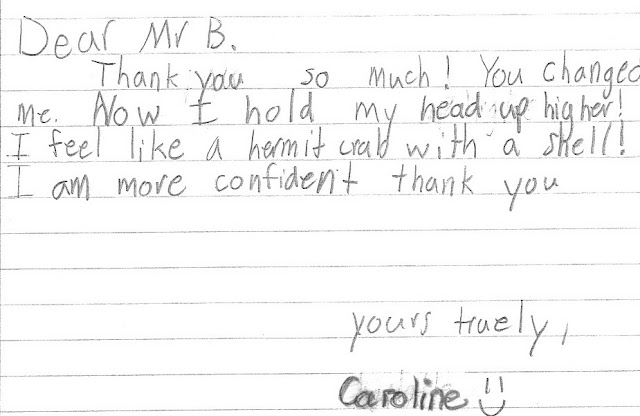 Dear Mr B.
Thank you so much! You changed
me. Now I hold my head up higher!
I feel like a hermit crab with a shell!
I am more confident thank you
yours truely,
Caroline